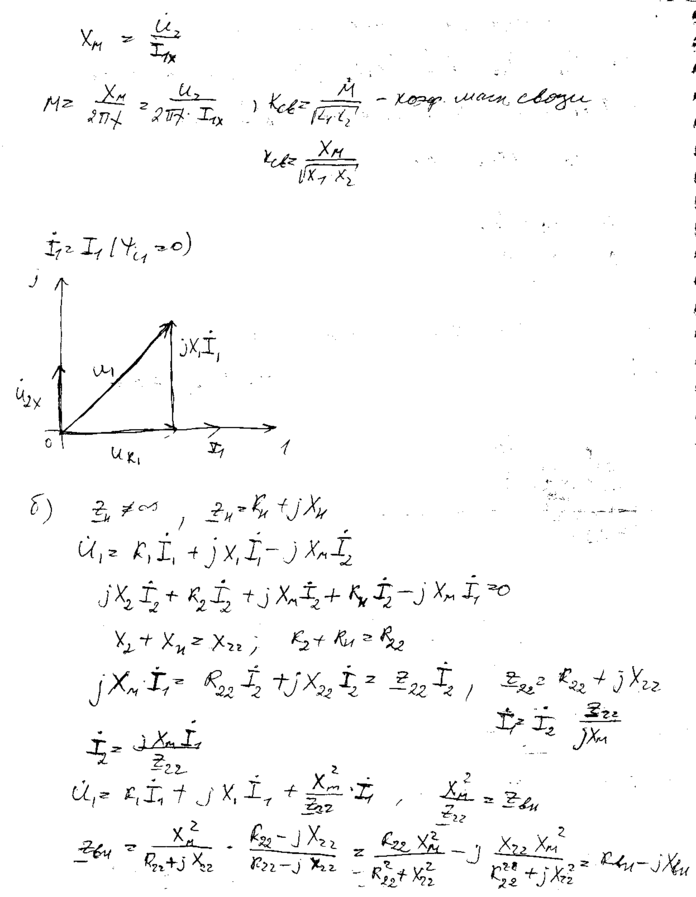 X_M = U̇₂ / I₁ₓ
M = X_M / 2πf = U₂ / 2πf · I₁ₓ , Kсв = M / √(L₁·L₂) – коэф. магн. связи
Kсв = X_M / √(X₁·X₂)
İ₁ = I₁ (Ψi₁ = 0)
j
jX₁İ₁
U₁
U̇₂ₓ
0
U_R₁
I₁
1
б) Z_н ≠ ∞ , Z_н = R_н + jX_н
U̇₁ = R₁İ₁ + jX₁İ₁ – jX_Mİ₂
jX₂İ₂ + R₂İ₂ + jX_нİ₂ + R_нİ₂ – jX_Mİ₁ = 0
X₂ + X_н = X₂₂ ; R₂ + R_н = R₂₂
jX_M·İ₁ = R₂₂İ₂ + jX₂₂İ₂ = Z₂₂İ₂ , Z₂₂ = R₂₂ + jX₂₂
İ₁ = İ₂ Z₂₂ / jX_M
İ₂ = jX_Mİ₁ / Z₂₂
U̇₁ = R₁İ₁ + jX₁İ₁ + X_M² / Z₂₂ · İ₁ , X_M² / Z₂₂ = Z_вн
Z_вн = X_M² / (R₂₂ + jX₂₂) · (R₂₂ – jX₂₂) / (R₂₂ – jX₂₂) = R₂₂X_M² / (R₂₂² + X₂₂²) – j X₂₂X_M² / (R₂₂² + jX₂₂²) = R_вн – jX_вн